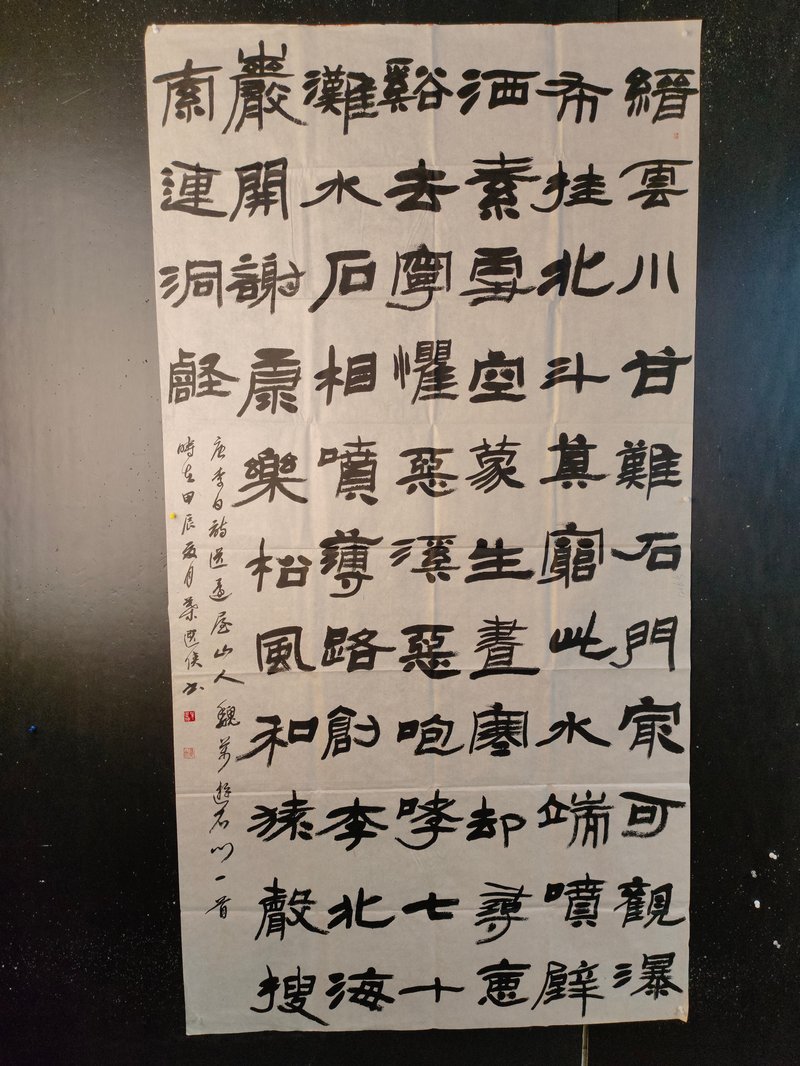 縉雲川甘難石門冣可觀瀑
布挂北斗莫窮此水端噴壁
洒素雪空蒙生晝寒却尋惡
谿去寧懼惡溪惡咆哮七十
灘水石相噴薄路創李北海
巖開謝康樂松風和猿聲搜
索連洞壑
唐李白詩送屋山人魏萬遊石门一首
時在甲辰夏月葉书